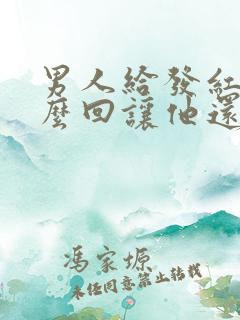 男人給發紅
麼回讓他還
馮家塬
未经同意禁止转载